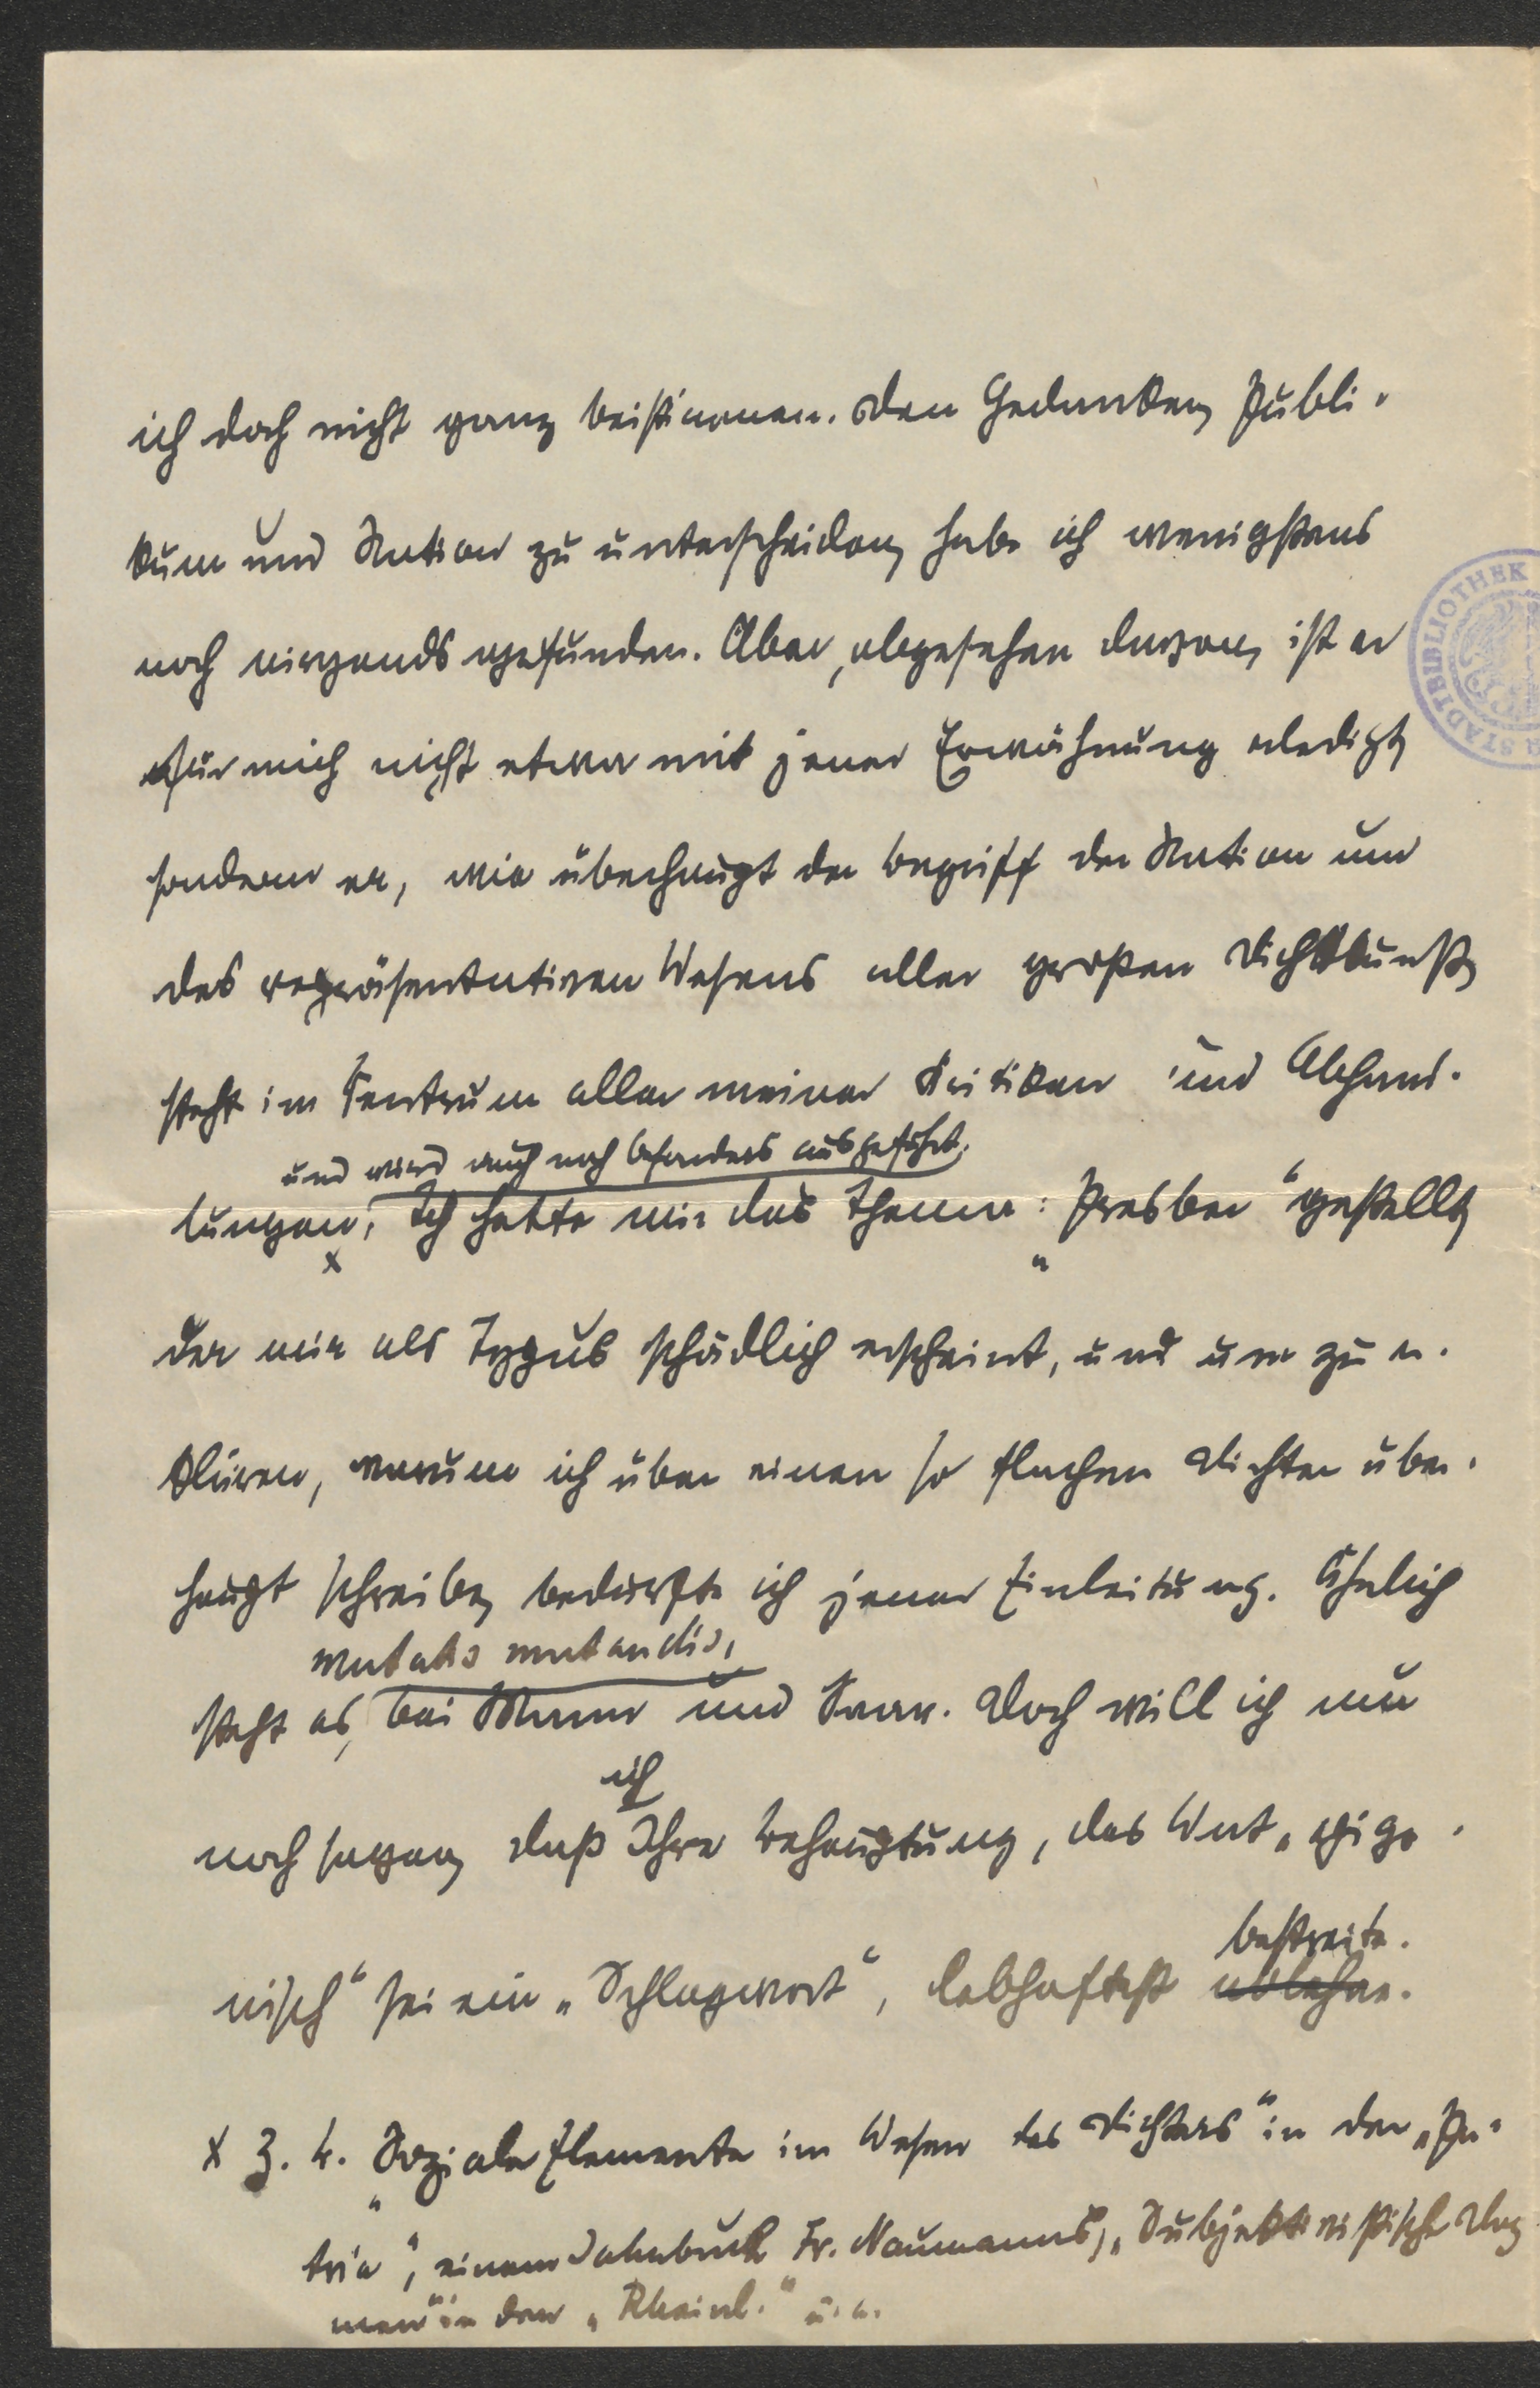 ich doch nicht ganz beistimmen. Den Gedanken, Publi-
kum und Nation zu unterscheiden, habe ich wenigstens
noch nirgends gefunden. Aber, abgesehen davon, ist er
für mich nicht etwa mit jener Erwähnung erledigt,
sondern er, wie überhaupt der Begriff der Nation und
des repräsentativen Wesens aller großen Dichtkunst,
steht im Zentrum aller meiner Kritiken und Abhand-
und wird auch noch besonders ausgeführt.
lungen, x Ich hatte mir das Thema: „Presber“ gestellt,
der mir als Typus schädlich erscheint, und um zu er-
klären, warum ich über einen so flachen Dichter über-
haupt schreibe, bedurfte ich jener Einleitung. Ähnlich
mutatis mutandis,
steht es, bei Mann und Saar. Doch will ich nur
ich
noch sagen, daß Ihre Behauptung, das Wort „epigo-
bestreite.
nisch“ sei ein „Schlagwort“, lebhaftest ablehne.
x Z. B. „Soziale Elemente im Wesen des Dichters“ in der „Pa-
tria“, einem Jahrbuch Fr. Naumanns, „Subjektivistische Dog-
men“ in den „Rheinl.“ u. a.
STADTBIBLIOTHEK